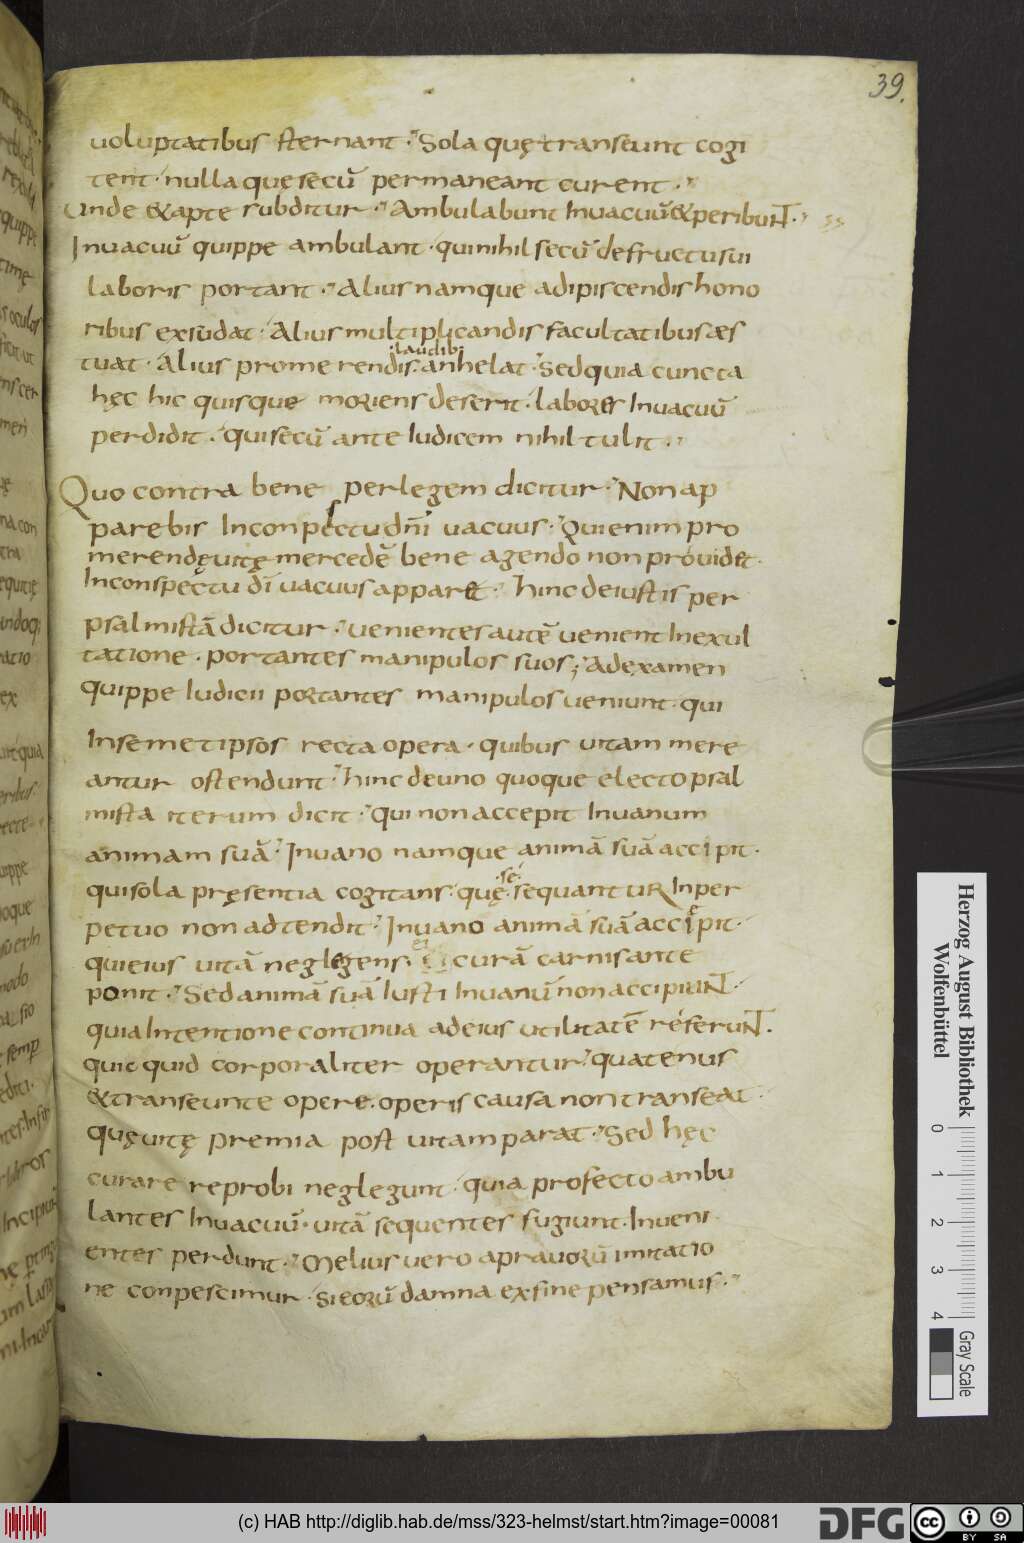 39.
uoluptatibus sternant · Sola quę transeunt cogi
tent · nulla quę secū permaneant curent ·
Unde & apte subditur · Ambulabunt Inuacuū & peribuNT ·
Inuacuū quippe ambulant · qui nihil secū de fructu sui
laboris portant · Alius namque adipiscendis hono
ribus exsudat · Alius multiplicandis facultatibus æs
tuat · Alius promerendis · laudib; anhelat · Sed quia cuncta
hęc hic quisque moriens deserit · labores Inuacuū
perdidit · qui secū ante Iudicem nihil tulit ·
Quo contra bene per legem dicitur · Non ap
parebis Inconspectu dñi uacuus · Qui enim pro
merendę uitę mercedē bene agendo non prouidet ·
Inconspectu dī uacuus apparet · hinc de iustis per
psalmistā dicitur · uenientes autē uenient In exul
tatione · portantes manipulos suos ; Ad examen
quippe Iudicii portantes manipulos ueniunt · qui
In semet ipsos recta opera · quibus uitam mere
antur ostendunt · hinc de uno quoque electo psal
mista iterum dicit · qui non accepit Inuanum
animam suā · Inuano namque animā suā accipit ·
qui sola pręsentia cogitans · quę · sē · sequantuR In per
petuo non adtendit · Inuano animā suā accipit ·
qui eius uitā neglegens · ei curā carnis ante
ponit · Sed animā suā Iusti Inuanū non accipiuNT ·
quia Intentione continua ad eius utilitatē referuNT .
quic quid corporaliter operantur · quatenus
& transeunte opere · operis causa non transeat ·
quę uitę premia post uitam parat · Sed hęc
curare reprobi neglegunt · quia profecto ambu
lantes Inuacuū · uitā sequentes fugiunt · Inueni
entes perdunt · Melius uero a prauorū imitatio
ne conpescimur · si eorū damna ex fine pensamus ·
Herzog August Bibliothek
Wolfenbüttel
0 1 2 3 4
Gray Scale
(c) HAB http://diglib.hab.de/mss/323-helmst/start.htm?image=00081
DFG
cc BY SA